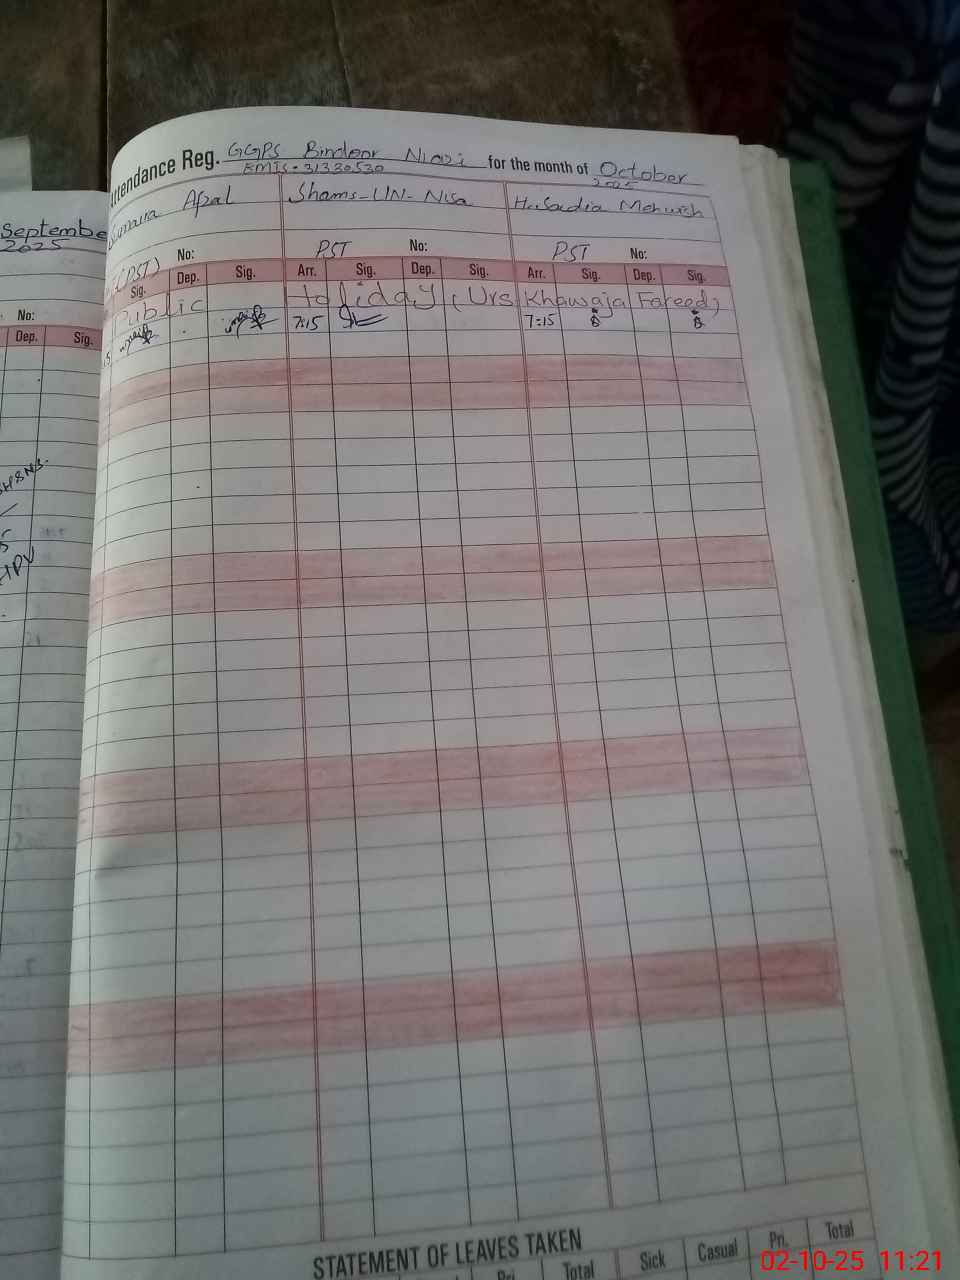 September
2025
No:
Dep. Sig.
5
HPV
Attendance Reg. GGPS Bindoor Niazi for the month of October
EMIS-31330530 2025
Sumaira Afzal Shams-UN-Nisa Hafiza Sadia Mehwish
(PST) No: PST No: PST No:
Sig. Dep. Sig. Arr. Sig. Dep. Sig. Arr. Sig. Dep. Sig.
Public Holiday (Urs Khawaja Fareed)
7:15 7:15
STATEMENT OF LEAVES TAKEN
Pri. Total Sick Casual Pri. Total
02-10-25 11:21